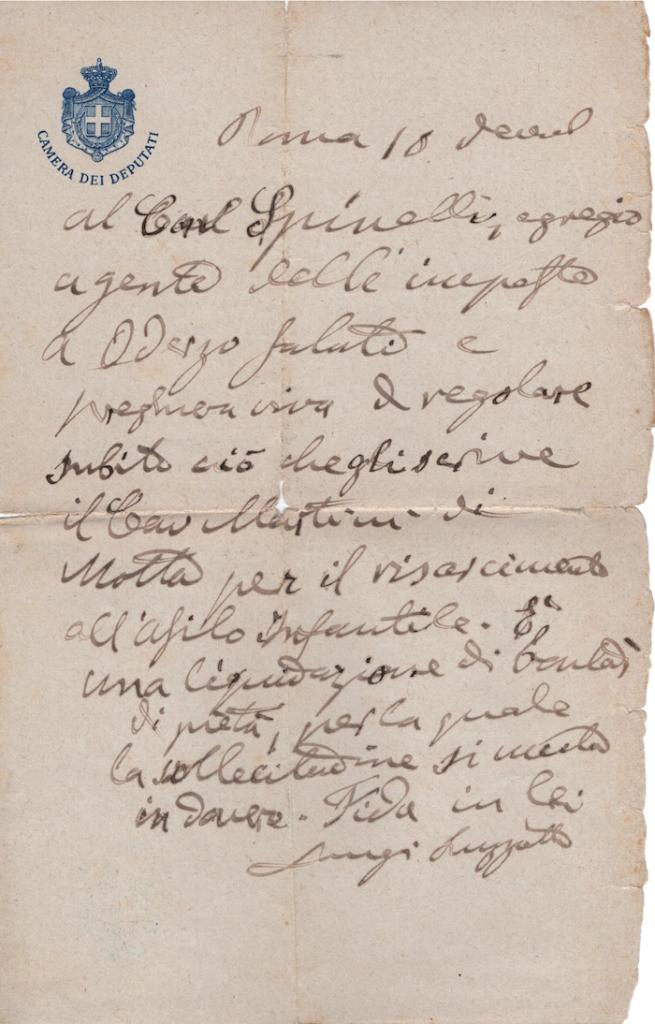 CAMERA DEI DEPUTATI
Roma 10
al Spinelli, egregio
agente delle imposte
a Oderzo saluti e
preghiera viva di regolare
subito ciò che gli scrive
il Cav Martini di
Motta per il risarcimento
all'Asilo Infantile. È
una liquidazione di bontà
di pietà, per la quale
la sollecitudine si muta
in dovere. Fida in lei
Luigi Luzzatti